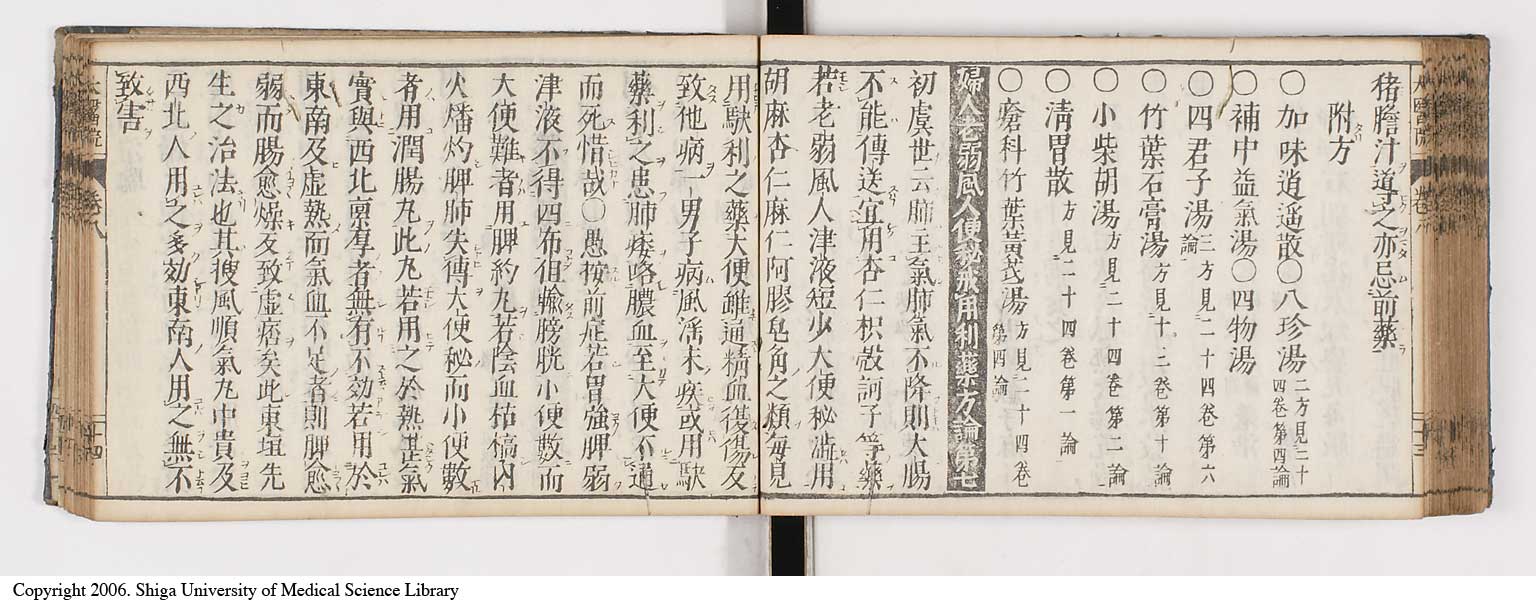 猪膽汁導之亦忌前藥
附方
〇加味逍遥散〇八珍湯二方見二十四卷第四論
〇補中益氣湯〇四物湯
〇四君子湯三方見二十四卷第六論
〇竹葉石膏湯方見十二卷第十論
〇小柴胡湯方見二十四卷第二論
〇淸胃散方見二十四卷第一論
〇瘡科竹葉黃芪湯方見二十四卷第四論
婦人老弱風人便秘戒用利藥方論第七
初虞世云肺主氣肺氣不降則大腸
不能傳送宜用杏仁枳殼訶子等藥
若老弱風人津液短少大便秘澁用
胡麻杏仁麻仁阿膠皂角之類每見
用駃利之藥大便雖通精血復傷反
致他病一男子病風淫末疾或用駃
藥利之患肺痿咯膿血至大便不通
而死惜哉〇愚按前症若胃強脾弱
津液不得四布但輸膀胱小便數而
大便難者用脾約丸若陰血枯槁內
火燔灼脾肺失傳大便秘而小便數
者用潤腸丸此丸若用之於熱甚氣
實與西北禀厚者無有不効若用於
東南及虛熱而氣血不足者則脾愈
弱而腸愈燥反致虛痞矣此東垣先
生之治法也其搜風順氣丸中貴及
西北人用之多効東南人用之無不
致害
卷八
二十四